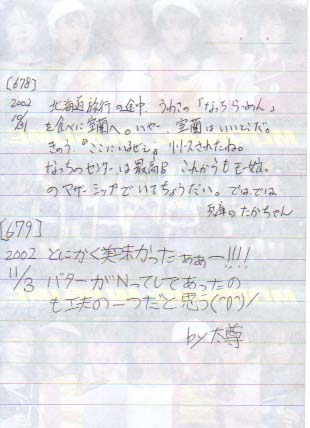 [678]
2002 北海道旅行の途中、うわさの「なっちらーめん」
10/31 を食べに室蘭へ。いやー、室蘭はいいとこだ。
きのう『ここにいるぜぇ』リリースされたね。
なっちのセンターは最高!! これからもモー娘。
のマザーシップでいてちょうだい。では、では
のたかちゃん
[679]
2002 とにかく美味かったぁぁー!!!!
11/3 バターがNってしてあったの
も工夫の一つだと思う(^0^)/
by 大尊